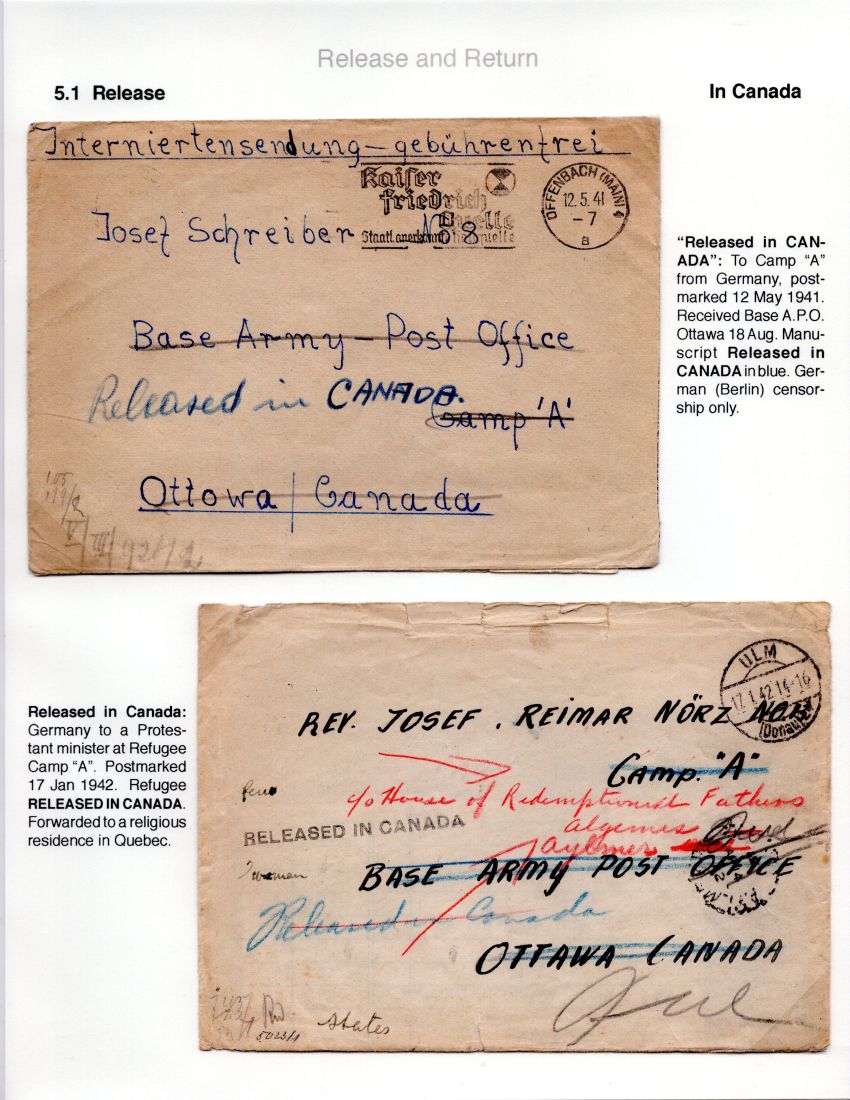 Release and Return
5.1 Release
In Canada
Interniertensendung – gebührenfrei
Kaiser
Friedrich
Quelle
OFFENBACH (MAIN) 4
12.5.41
– 7
a
Josef Schreiber No 8
Base Army – Post Office
Released in CANADA.
Camp 'A'
Ottowa | Canada
"Released in CAN-
ADA": To Camp "A"
from Germany, post-
marked 12 May 1941.
Received Base A.P.O.
Ottawa 18 Aug. Manu-
script Released in
CANADA in blue. Ger-
man (Berlin) censor-
ship only.
Released in Canada:
Germany to a Protes-
tant minister at Refugee
Camp "A". Postmarked
17 Jan 1942. Refugee
RELEASED IN CANADA.
Forwarded to a religious
residence in Quebec.
ULM
17.1.42 14-16
(Donau)
REV. JOSEF . REIMAR NÖRZ
Camp. "A"
c/o House of Redemptionist Fathers
Aylmer
RELEASED IN CANADA
BASE ARMY POST OFFICE
Released in Canada
OTTAWA CANADA
States
5023/1